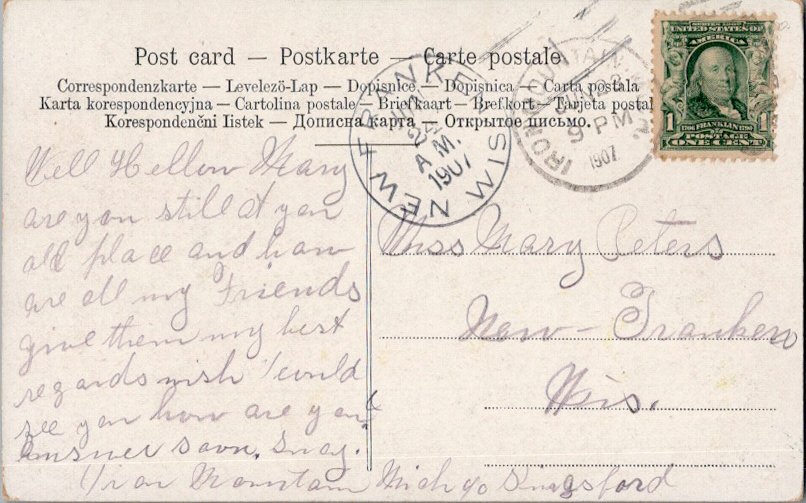 Post card — Postkarte — Carte postale
Correspondenzkarte — Levelező-Lap — Dopisnice — Dopisnica — Carta postala
Karta korespondencyjna — Cartolina postale — Briefkaart — Brefkort — Tarjeta postal
Korespondenčni listek — Дописна карта — Открытое письмо.
UNITED STATES OF
AMERICA
1706 FRANKLIN 1790
1 POSTAGE 1
ONE CENT
IRON MOUNTAIN
9-PM
1907
NEW FRANKEN WIS
A.M.
1907
Well Hellow Mary
are you still at you
old place and how
are all my Friends
give them my best
regards wish I could
see you how are you
answer soon.
Iron Mountain Mich Kingsford
Miss Mary Peters
New-Franken
Wis.